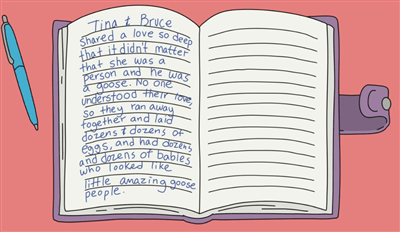 Tina & Bruce
Shared a love so deep
that it didn't matter
that she was a
person and he was
a goose. No one
understood their love,
so they ran away
together and laid
dozens & dozens of
eggs, and had dozens
and dozens of babies
who looked like
little amazing goose
people.